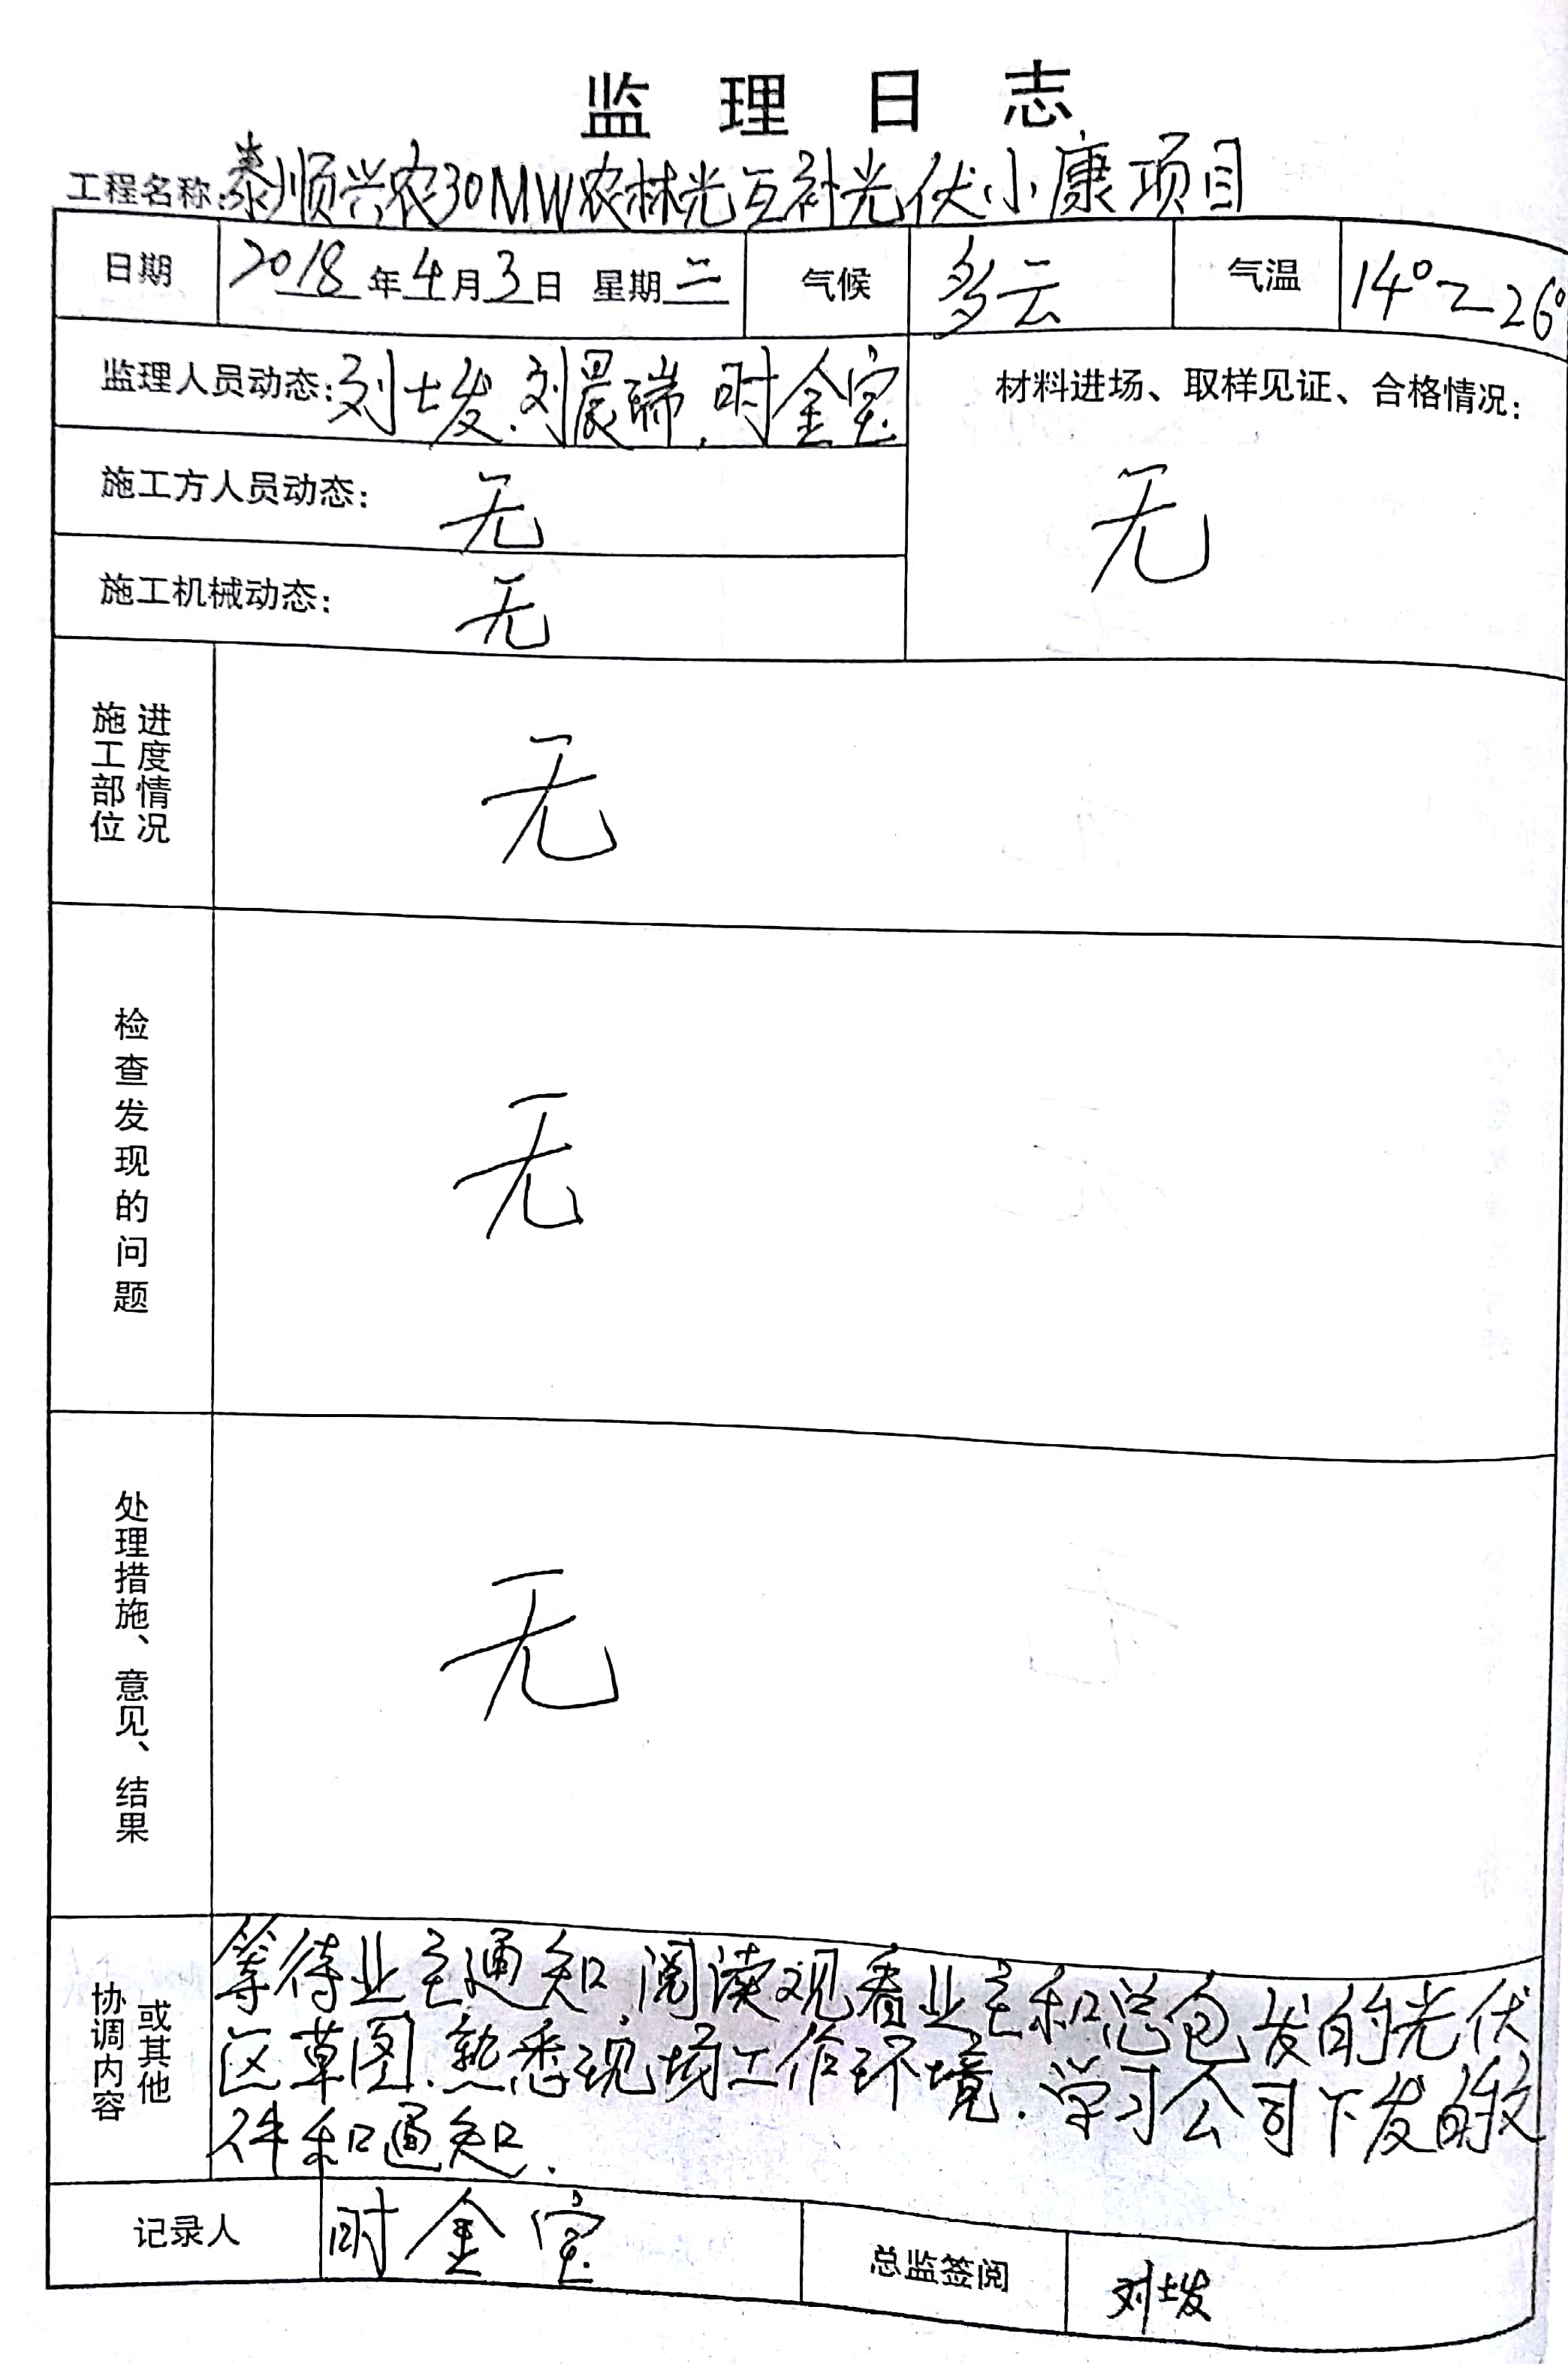 监理日志
工程名称:泰顺兴农30MW农林光互补光伏小康项目
日期 2018年4月3日 星期二 气候 多云 气温 14°~26°
监理人员动态:刘士发、刘晨瑞、时金宝
材料进场、取样见证、合格情况:
无
施工方人员动态: 无
施工机械动态: 无
施工部位
进度情况
无
检查发现的问题
无
处理措施、意见、结果
无
协调内容
或其他
等待业主通知,阅读观看业主和总包发的光伏
区草图、熟悉现场工作环境.学习公司下发的文
件和通知.
记录人 时金宝 总监签阅 刘士发